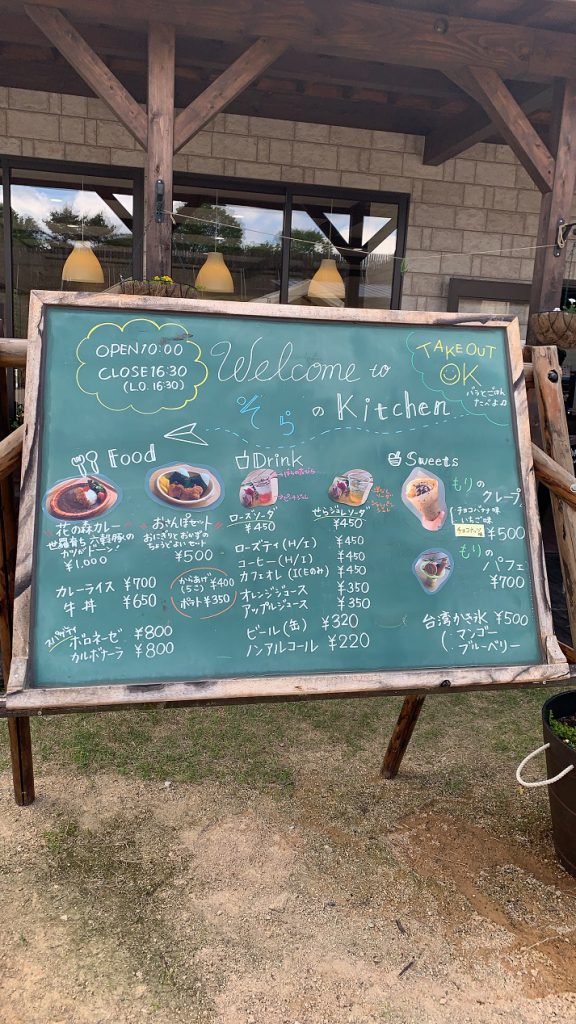 OPEN 10:00
CLOSE 16:30
(L.O. 16:30)
Welcome to
そらのKitchen
TAKE OUT
OK
バラとごはん
たべよカ
Food
花の森カレー
世羅育ち 六穀豚の
カツがドーン!
¥1,000
おさんぽセット
おにぎりとおかずの
ちょうどよいセット
¥500
カレーライス ¥700
牛丼 ¥650
からあげ ¥400
(5こ)
ポテト ¥350
スパゲティ
ボロネーゼ ¥800
カルボナーラ ¥800
Drink
ローズソーダ
¥450
せらジルソーダ
¥450
ローズティ (H/I) ¥450
コーヒー (H/I) ¥450
カフェオレ (ICEのみ) ¥450
オレンジジュース ¥350
アップルジュース ¥350
ビール (缶) ¥320
ノンアルコール ¥220
Sweets
もりの
クレープ
チョコバナナ味
いちご味
¥500
もりの
パフェ
¥700
台湾かき氷 ¥500
マンゴー
ブルーベリー